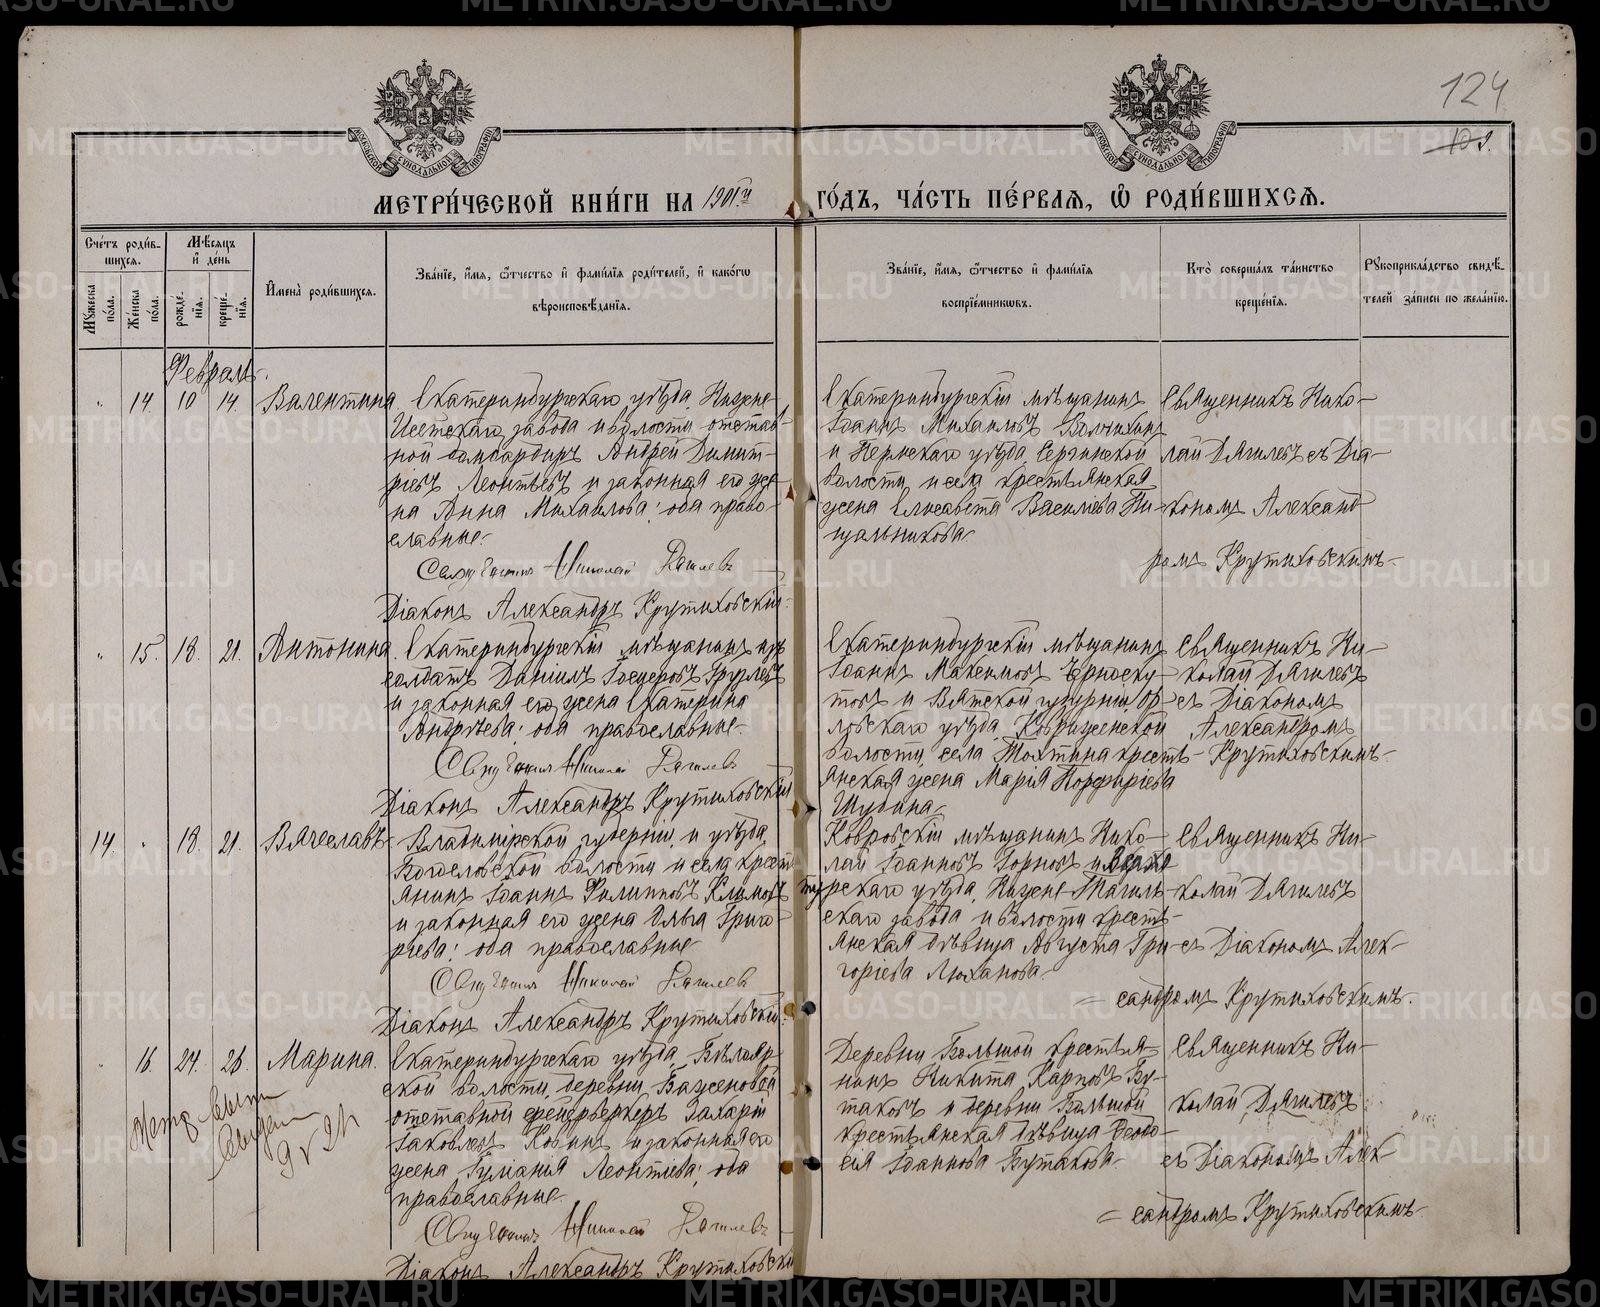 124
108.
МОСКОВСКОЙ СѴНОДАЛЬНОЙ ТИПОГРАФІИ
МОСКОВСКОЙ СѴНОДАЛЬНОЙ ТИПОГРАФІИ
МЕТРИ́ЧЕСКОЙ КНИ́ГИ НА 1901й ГО́ДЪ, ЧА́СТЬ ПЕ́РВАЯ, Ѡ РОДИ́ВШИХСЯ.
Сче́тъ роди́в-
шихся.
Му́жеска по́ла.
Же́нска по́ла.
Мѣ́сяцъ
и҆ де́нь
рожде́-
нїя.
креще́-
нїя.
И҆мена̀ роди́вшихся.
Зва́нїе, и҆́мя, ѻ҆́тчество и҆ фами́лїя роди́телей, и҆ како́гѡ
вѣроисповѣ́данїя.
Зва́нїе, и҆́мя, ѻ҆́тчество и҆ фами́лїя
воспрїе́мникѡвъ.
Кто̀ соверша́лъ та́инство
креще́нїя.
Рꙋкоприкла́дство свидѣ́-
телей за́писи по жела́нїю.
Февраль.
" 14. 10 14. Валентина
Екатеринбургскаго уѣзда, Нижне-
Исетскаго завода и волости отстав-
ной бомбардиръ Андрей Димит-
ріевъ Леонтьевъ и законная его же-
на Анна Михаилова; оба право-
славные.
Священникъ Николай Дягилевъ
Діаконъ Александръ Крутиховскій.
Екатеринбургскій мѣщанинъ
Іоаннъ Михаиловъ Волчихинъ
и Пермскаго уѣзда, Сергинской
волости и села крестьянская
жена Елисавета Василіева Пи-
щальникова.
Священникъ Нико-
лай Дягилевъ съ Діа-
кономъ Александ
ромъ Крутиховскимъ.
" 15. 18. 21. Антонина.
Екатеринбургскій мѣщанинъ изъ
солдатъ Даніилъ
и законная его жена Екатерина
Андрѣева; оба православные.
Священникъ Николай Дягилевъ
Діаконъ Александръ Крутиховскій
Екатеринбургскій мѣщанинъ
Іоаннъ Максимовъ Черноску-
товъ и Вятской губерніи, Ор-
ловскаго уѣзда, Коврижской
волости, села Тохтина кресть-
янская жена Марія Порфиріева
Шубина.
Священникъ Ни-
колай Дягилевъ
съ Діакономъ
Александромъ
Крутиховскимъ.
14. " 18. 21. Вячеславъ
Владимірской губерніи и уѣзда,
Богословской волости и села крест
янинъ Іоаннъ Филипповъ Климовъ
и законная его жена Ольга Григо-
ріева; оба православные
Священникъ Николай Дягилевъ
Діаконъ Александръ Крутиховскій.
Ковровскій мѣщанинъ Нико-
лай Іоанновъ Горновъ и Верхо
турскаго уѣзда, Нижне-Тагиль-
скаго завода и волости кресть-
янская дѣвица Августа Гри-
горіева Люханова.
Священникъ Ни-
колай Дягилевъ
съ Діакономъ Алек-
сандромъ Крутиховскимъ.
" 16. 24. 26. Марина.
Екатеринбургскаго уѣзда, Бѣлояр-
ской волости, деревни Баженовой
отставной фейерверкеръ Захарій
Іаковлевъ Кобинъ и законная его
жена Іуліанія Леонтіева; оба
православные.
Священникъ Николай Дягилевъ
Діаконъ Александръ Крутиховскій
Деревни Большой крестья-
нинъ Никита Карповъ Бу-
таковъ и деревни Большой
крестьянская дѣвица Феодо-
сія Іоаннова Бутакова.
Священникъ Ни-
колай Дягилевъ
съ Діакономъ Алек-
сандромъ Крутиховскимъ.
METRIKI.GASO-URAL.RU